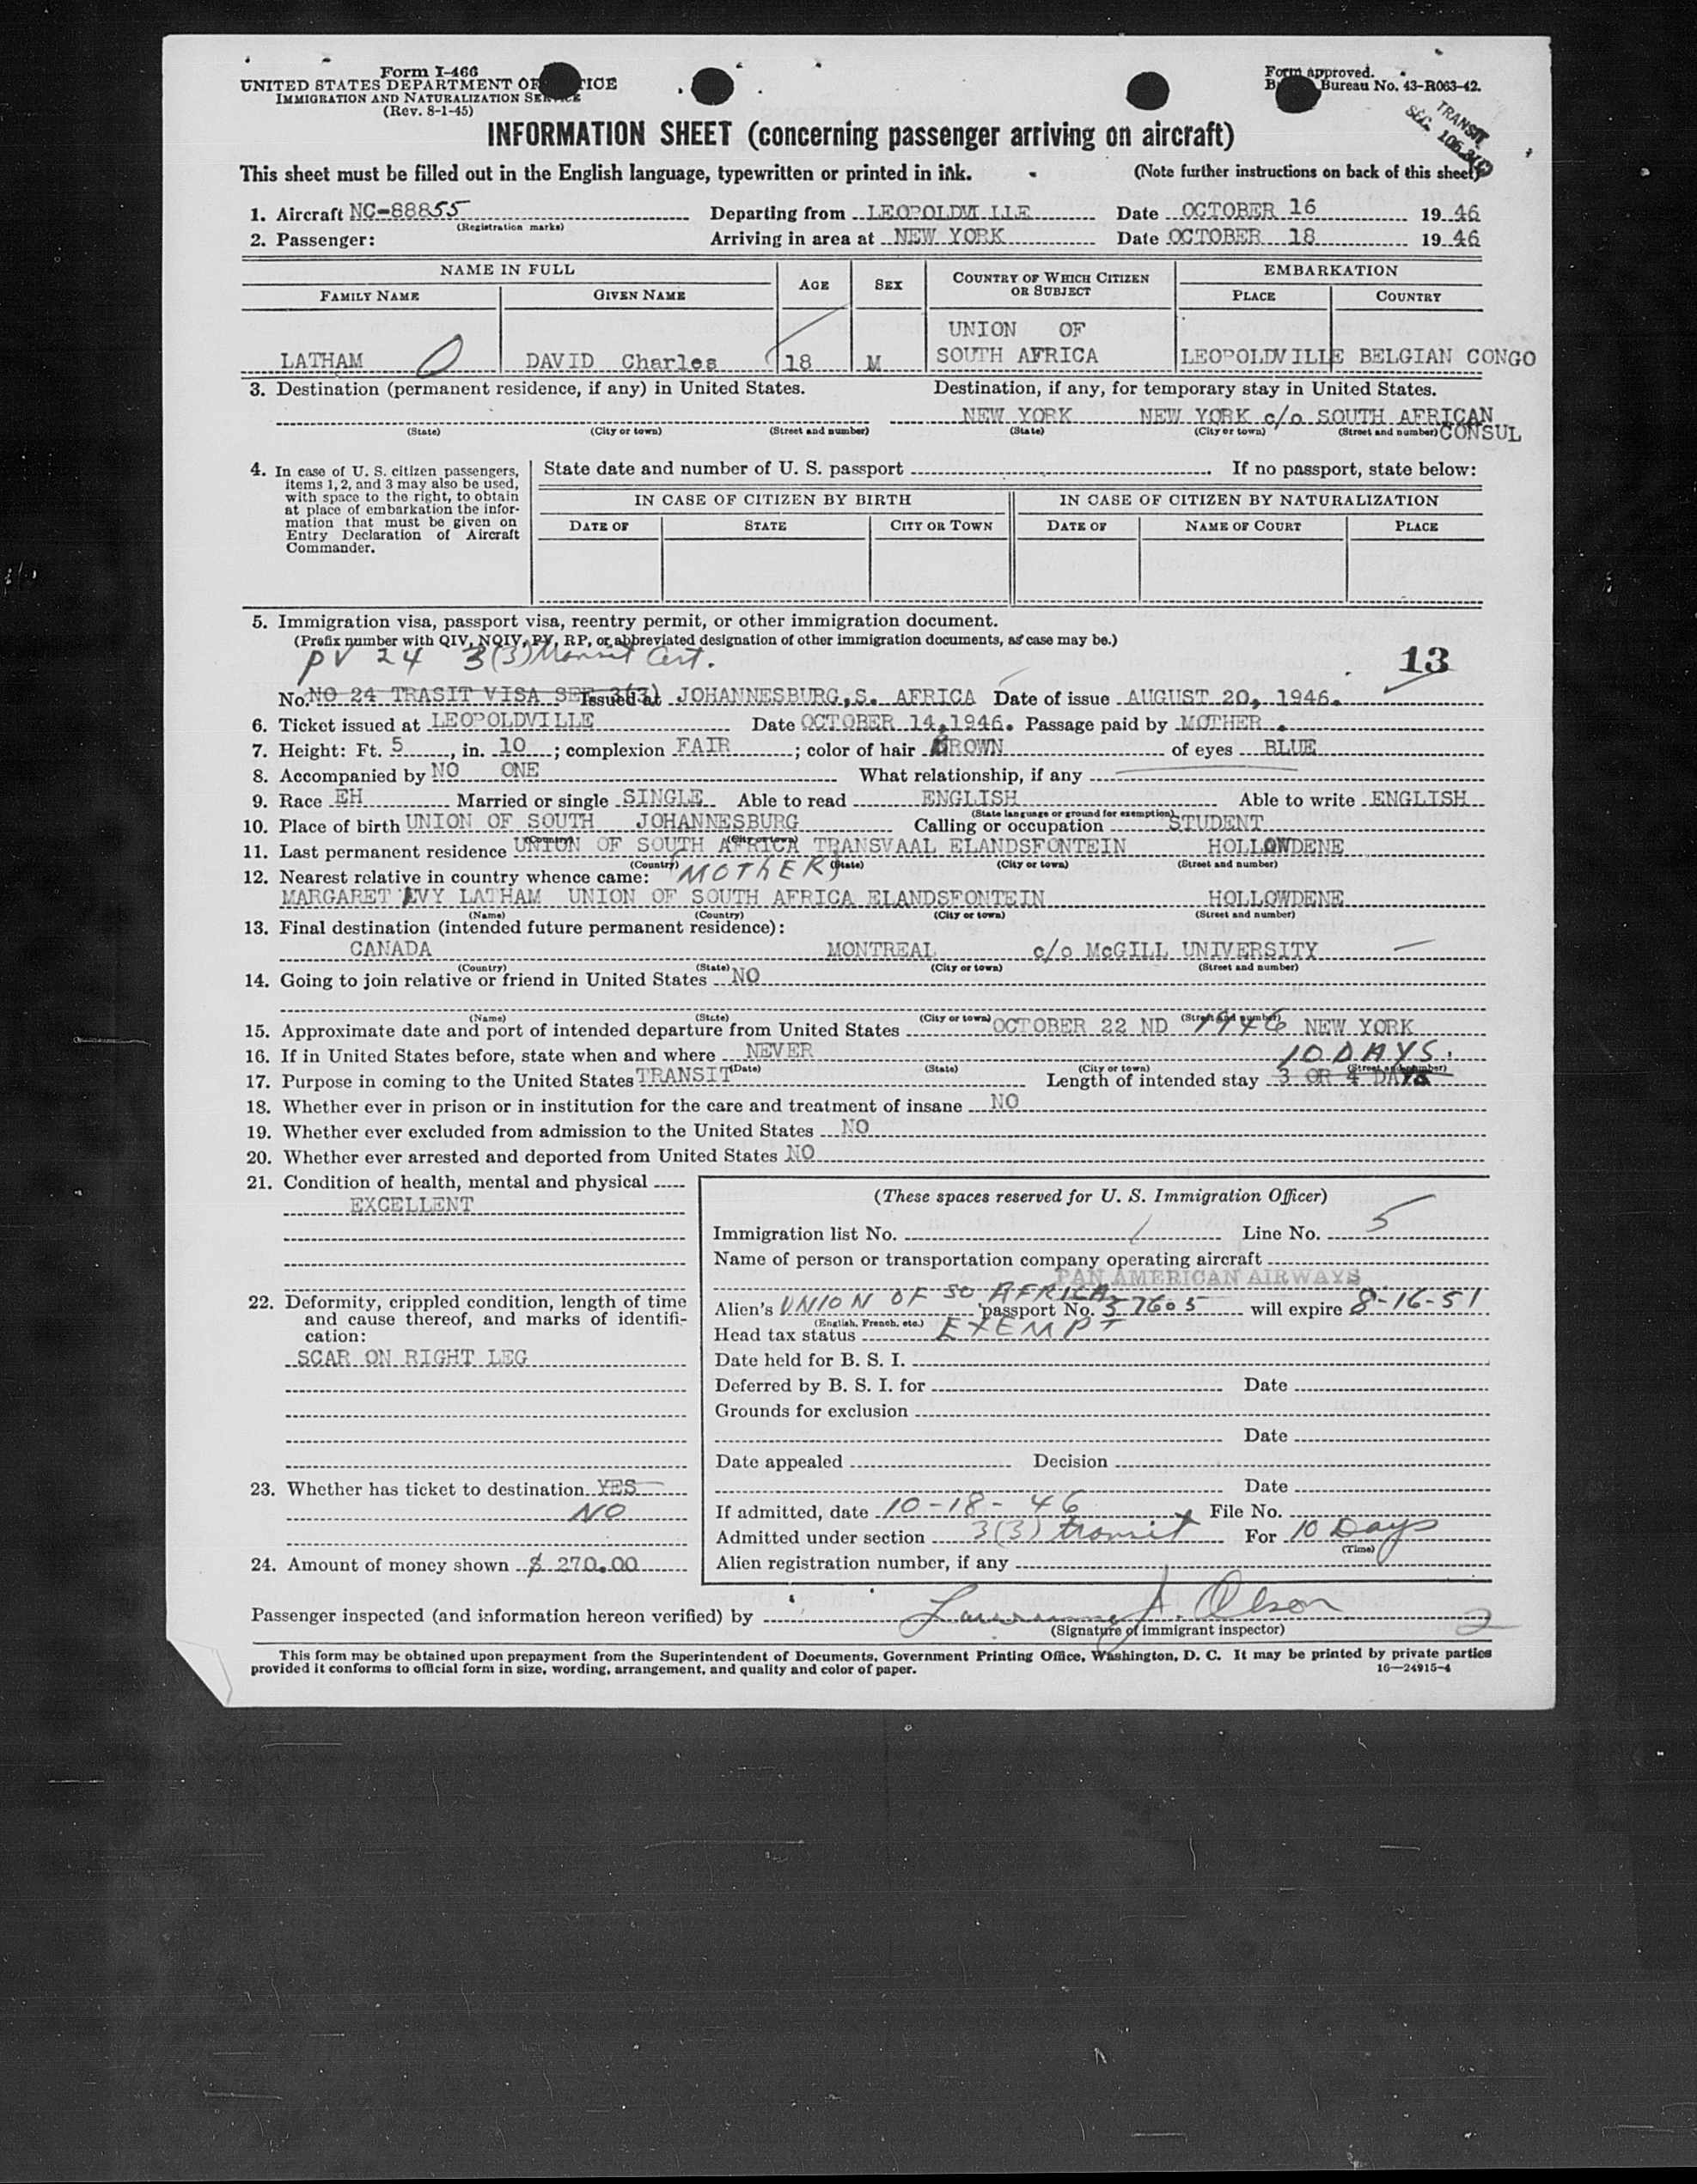 Form I-466
UNITED STATES DEPARTMENT OF JUSTICE
IMMIGRATION AND NATURALIZATION SERVICE
(Rev. 8-1-45)
Form approved.
Bureau No. 43-R063-42.
TRANSIT
SEC.
INFORMATION SHEET (concerning passenger arriving on aircraft)
This sheet must be filled out in the English language, typewritten or printed in ink. (Note further instructions on back of this sheet)
1. Aircraft NC-88855 Departing from LEOPOLDVILLE Date OCTOBER 16 1946
(Registration marks)
2. Passenger: Arriving in area at NEW YORK Date OCTOBER 18 1946
NAME IN FULL AGE SEX COUNTRY OF WHICH CITIZEN OR SUBJECT EMBARKATION
FAMILY NAME GIVEN NAME PLACE COUNTRY
UNION OF
LATHAM DAVID Charles 18 M SOUTH AFRICA LEOPOLDVILLE BELGIAN CONGO
3. Destination (permanent residence, if any) in United States. Destination, if any, for temporary stay in United States.
NEW YORK NEW YORK c/o SOUTH AFRICAN
(State) (City or town) (Street and number) (State) (City or town) (Street and number) CONSUL
4. In case of U. S. citizen passengers, items 1, 2, and 3 may also be used, with space to the right, to obtain at place of embarkation the information that must be given on Entry Declaration of Aircraft Commander.
State date and number of U. S. passport . If no passport, state below:
IN CASE OF CITIZEN BY BIRTH IN CASE OF CITIZEN BY NATURALIZATION
DATE OF STATE CITY OR TOWN DATE OF NAME OF COURT PLACE
5. Immigration visa, passport visa, reentry permit, or other immigration document.
(Prefix number with QIV, NQIV, PV, RP, or abbreviated designation of other immigration documents, as case may be.)
PV 24 3(3) transit Cert. 13
No. NO 24 TRASIT VISA SEE 3(3) Issued at JOHANNESBURG,S. AFRICA Date of issue AUGUST 20, 1946.
6. Ticket issued at LEOPOLDVILLE Date OCTOBER 14,1946. Passage paid by MOTHER .
7. Height: Ft. 5, in. 10; complexion FAIR; color of hair BROWN of eyes BLUE
8. Accompanied by NO ONE What relationship, if any
9. Race EH Married or single SINGLE Able to read ENGLISH Able to write ENGLISH
(State language or ground for exemption)
10. Place of birth UNION OF SOUTH JOHANNESBURG Calling or occupation STUDENT
(Country) (City or town)
11. Last permanent residence UNION OF SOUTH AFRICA TRANSVAAL ELANDSFONTEIN HOLLOWDENE
(Country) (State) (City or town) (Street and number)
12. Nearest relative in country whence came: (MOTHER)
MARGARET IVY LATHAM UNION OF SOUTH AFRICA ELANDSFONTEIN HOLLOWDENE
(Name) (Country) (City or town) (Street and number)
13. Final destination (intended future permanent residence):
CANADA MONTREAL c/o McGILL UNIVERSITY
(Country) (State) (City or town) (Street and number)
14. Going to join relative or friend in United States NO
(Name) (State) (City or town) (Street and number)
15. Approximate date and port of intended departure from United States OCTOBER 22 ND 1946 NEW YORK
16. If in United States before, state when and where NEVER 10 DAYS.
(Date) (State) (City or town) (Street and number)
17. Purpose in coming to the United States TRANSIT Length of intended stay 3 OR 4 DAYS
18. Whether ever in prison or in institution for the care and treatment of insane NO
19. Whether ever excluded from admission to the United States NO
20. Whether ever arrested and deported from United States NO
21. Condition of health, mental and physical
EXCELLENT
22. Deformity, crippled condition, length of time and cause thereof, and marks of identification:
SCAR ON RIGHT LEG
23. Whether has ticket to destination YES
NO
24. Amount of money shown $ 270.00
(These spaces reserved for U. S. Immigration Officer)
Immigration list No. 1 Line No. 5
Name of person or transportation company operating aircraft
PAN AMERICAN AIRWAYS
Alien's UNION OF SO AFRICA passport No. 57605 will expire 8-16-51
(English, French, etc.)
Head tax status EXEMPT
Date held for B. S. I.
Deferred by B. S. I. for Date
Grounds for exclusion
Date
Date appealed Decision
Date
If admitted, date 10-18-46 File No.
Admitted under section 3(3) transit For 10 Days
(Time)
Alien registration number, if any
Passenger inspected (and information hereon verified) by Lawrence J. Olson 2
(Signature of immigrant inspector)
This form may be obtained upon prepayment from the Superintendent of Documents, Government Printing Office, Washington, D. C. It may be printed by private parties
provided it conforms to official form in size, wording, arrangement, and quality and color of paper. 16—24915-4